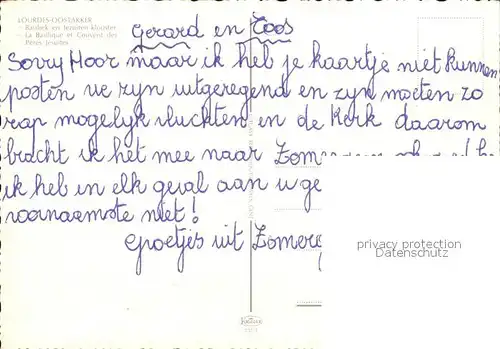 LOURDES-OOSTAKKER
– Basiliek en Jezuïten klooster
– La Basilique et Couvent des
Pères Jésuites
Gerard en Toos
Sorry Hoor maar ik heb je kaartje niet kunnen
posten we zijn uitgeregend en zijn moeten zo
rap mogelijk vluchten en de Kerk daarom
bracht ik het mee naar
ik heb in elk geval aan u ge
voornaamste niet!
Groetjes uit Zomer
privacy protection
Datenschutz